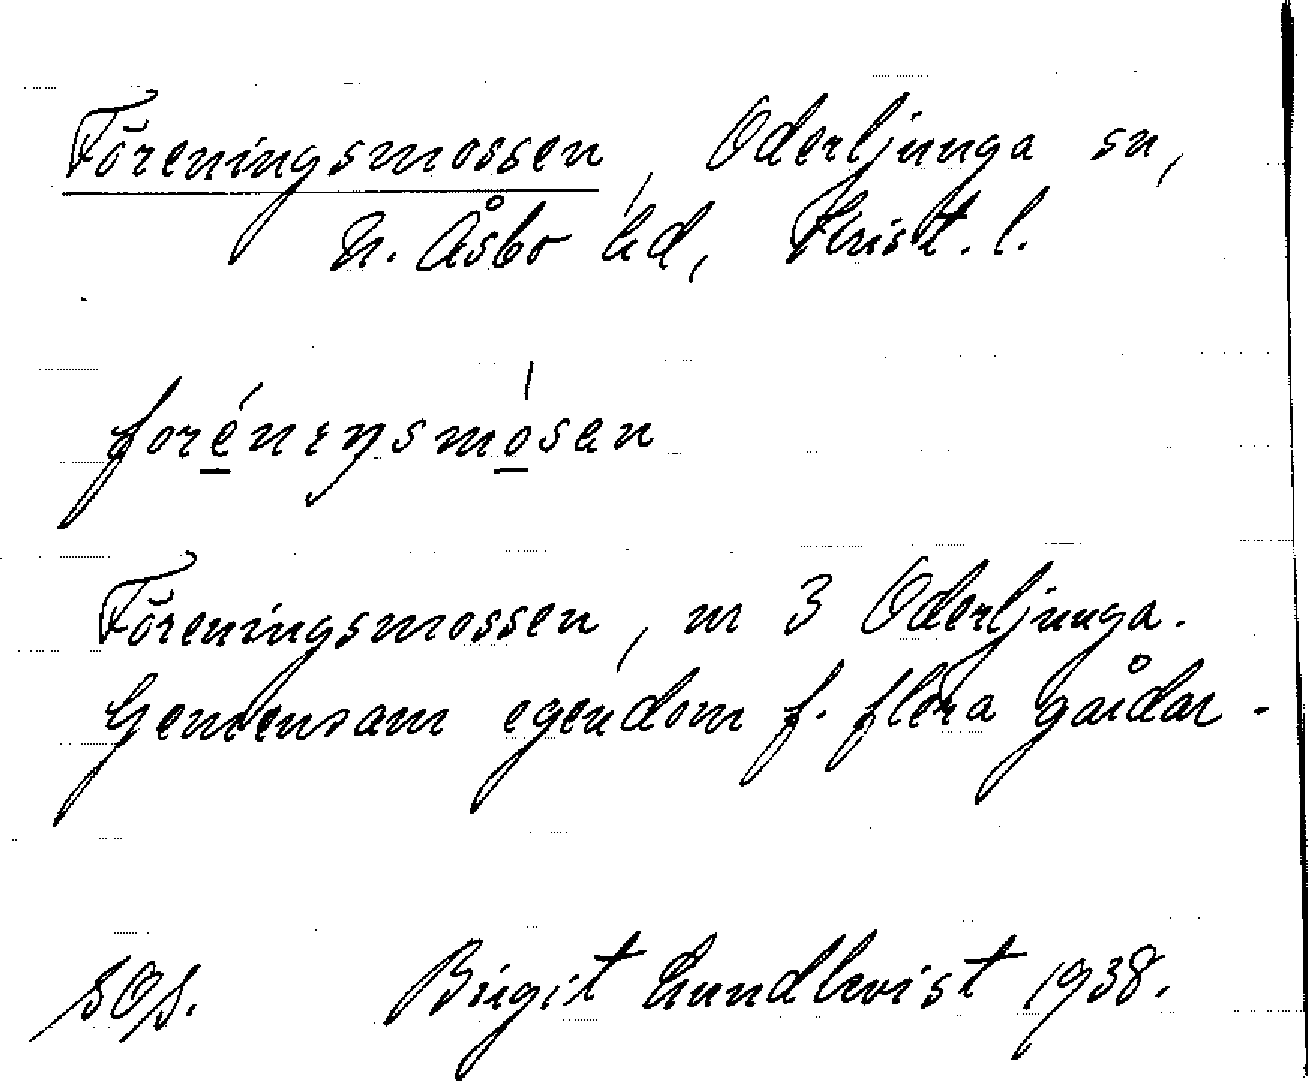 Föreningsmossen, Oderljunga sn,
N. Åsbo hd, Krist. l.
forénɪŋsmósen
Föreningsmossen, nr 3 Oderljunga.
Gemensam egendom f. flera gårdar.
Birgit Lundkvist 1938.